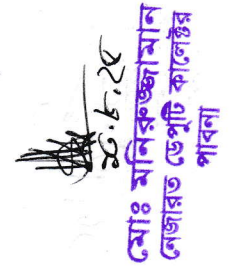 ২০.৮.২৫
মোঃ মনিরুজ্জামান
নেজারত ডেপুটি কালেক্টর
পাবনা